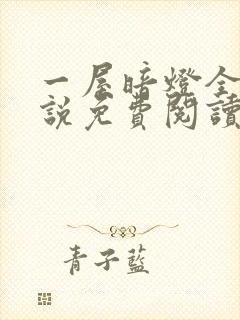 一屋暗燈全
說免費閱讀
青子藍